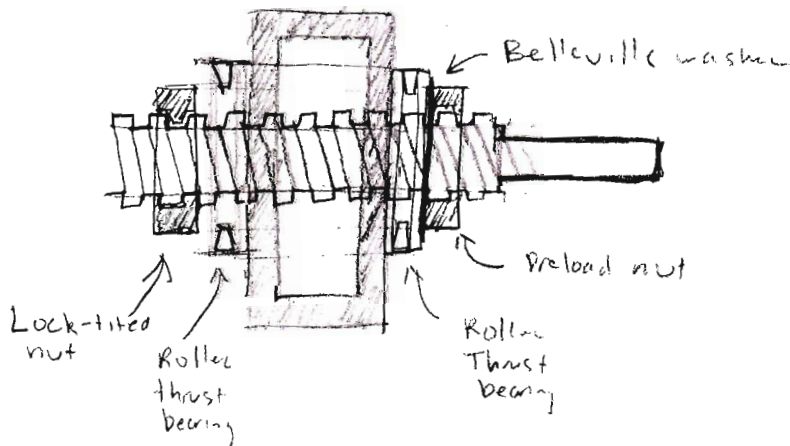 Belleville washer
Preload nut
Lock-tited
nut
Roller
thrust
bearing
Roller
Thrust
bearing